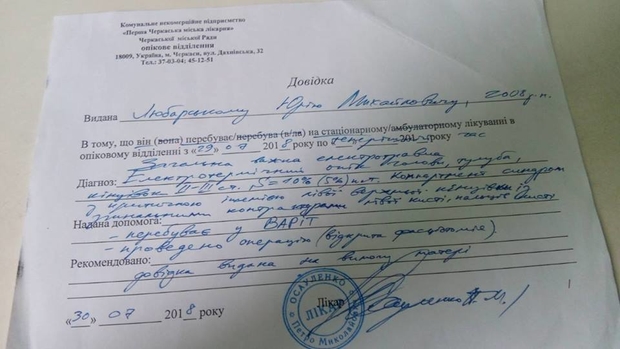 Комунальне некомерційне підприємство
«Перша Черкаська міська лікарня»
Черкаської міської Ради
опікове відділення
18009, Україна, м. Черкаси, вул. Дахнівська, 32
Тел.: 37-03-04; 45-12-51
Довідка
Видана Любарському Юрію Михайловичу, 2008 р.н.
В тому, що він (вона) перебуває/перебува (в/ла) на стаціонарному/амбулаторному лікуванні в
опіковому відділенні з «29» 07 2018 року по теперішній 201 року час
Загальна важка електротравма
Діагноз: Електротермічний опік голови, тулуба,
кінцівок II-III ст. S=10% (5%) п.т. Компартмент синдром
з ішемією лівої верхньої кінцівки із
контрактурами лівої кисті, пальців кисті
Надана допомога:
- перебуває у ВАРІТ
- проведено операцію (відкрита фасціотомія)
Рекомендовано:
довідка видана на вимогу матері
Лікар
«30» 07 2018 року
ОСАУЛЕНКО
ЛІКАР
Петро Миколайович